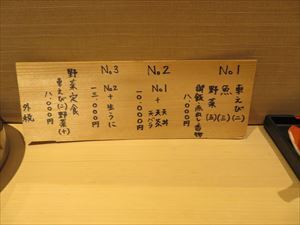 No.1
車えび(二)
魚(三)
野菜(五)
御飯 赤だし 香物
八,〇〇〇円
No.2
No.1
+
天丼
天茶
天バラ
一〇,〇〇〇円
No.3
No.2
+
生うに
一三,〇〇〇円
野菜定食
車えび(二)野菜(十)
八,〇〇〇円
外税